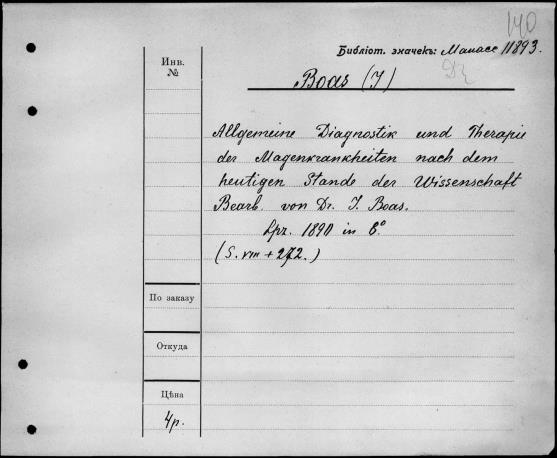 140
Библіот. значекъ: Манасс 11893.
Инв.
№
Boas (I)
Allgemeine Diagnostik und Therapie
der Magenkrankheiten nach dem
heutigen Stande der Wissenschaft
Bearb. von Dr. I. Boas.
Lpz. 1890 in 8°
(S. VIII + 272.)
По заказу
Откуда
Цѣна
4р.